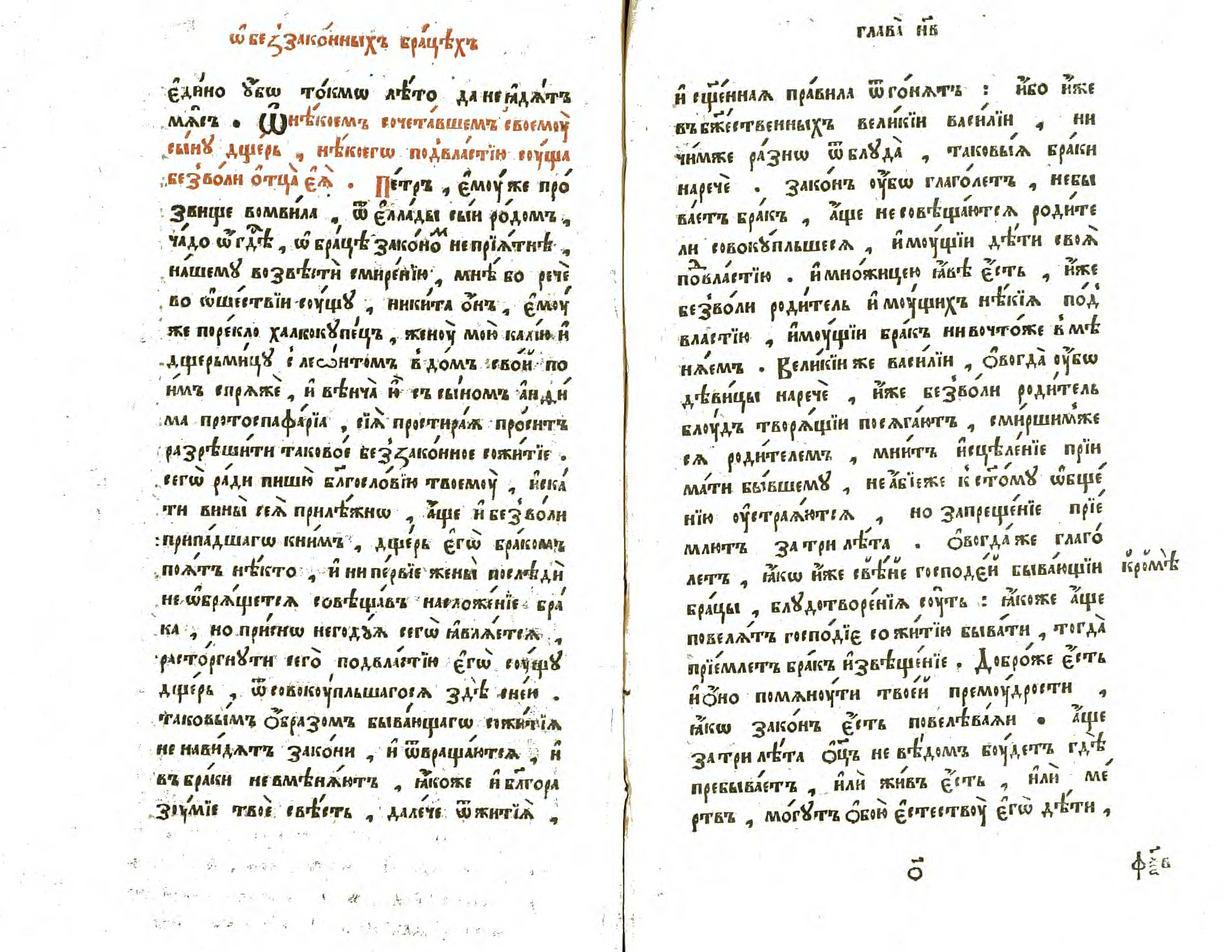 ѡ҆ беззако́нныхъ бра́цѣхъ
є҆ди́но ᲂу҆́бѡ то́кмѡ лѣ́то да не ꙗ҆дѧ́тъ
мѧ́съ . Ѿ нѣ́коемъ сочета́вшемъ своемоу̀
сы́нꙋ дще́рь , нѣ́коегѡ под̾вла́стїю соу́ща
без̾во́ли ѻ҆тца̀ є҆ѧ̀ . Пе́тръ , є҆моу́же про́
звище вомви́ла , ѿ є҆лла́ды сы́и ро́домъ ,
ча́до ѡ҆ гд҇ѣ , ѡ҆ бра́цѣ зако́но неприѧ́тнѣ ,
на́шемꙋ возвѣстѝ смире́нїю , мнѣ́ бо речѐ
во ѡ҆ше́ствїи соу́щꙋ , ники́та ѻ҆́нъ , є҆моу́
же порекло̀ халкокꙋпе́цъ , женоу̀ мою̀ калю̀ и҆
дще́рь ми́цꙋ с̾ лесѡнто́мъ в̾ до́мъ сво́й по
и́мъ спрѧжѐ , и҆ вѣнча̀ ю҆̀ съ сы́номъ а҆нді
ма протоспафа́рїа , сїѧ̀ простира́ѧ про́ситъ
разрѣши́ти таково́е беззако́нное сожи́тїе .
сегѡ̀ ра́ди пишю̀ бл҃гословїю твоемоу̀ , и҆ска́
ти вины̀ сеѧ̀ прилѣ́жнѡ , а҆́ще и҆ без̾во́ли
припа́дшагѡ к̾ни́мъ , дще́рь є҆гѡ̀ бра́комъ
поѧ́тъ нѣ́кто , и҆ ни пе́рвїе жены̀ послѣдѝ
не ѡ҆брѧ́щетсѧ совѣща́въ насложе́нїе бра́
ка , но при́снѡ негодꙋ́ѧ сегѡ̀ ꙗ҆влѧ́етсѧ ,
расто́ргнꙋти сего̀ под̾вла́стїю є҆гѡ̀ соу́щꙋ
дще́рь , ѿ совокоу́пльшагосѧ здѣ̀ с̾не́ю .
таковы́мъ ѻ҆́бразомъ быва́ющагѡ сожи́тїѧ
не нави́дѧтъ зако́ни , и҆ ѿвраща́ютсѧ , и҆
въ бра́ки не вмѣнѧ́ютъ , ꙗ҆́коже и҆ бл҃гора
зоу́мїе твоѐ свѣ́сть , дале́че ѿ жи́тїѧ ,
глава̀ н҃в
и҆ сщ҃е́ннаѧ пра́вила ѿго́нѧтъ : и҆́бо и҆́же
въ бж҃е́ственныхъ вели́кїи васи́лїи , ни
чи́мже ра́знѡ ѿ блꙋда̀ , таковы́ѧ бра́ки
наречѐ . зако́нъ ᲂу҆́бѡ глаго́летъ , не бы
ва́етъ бра́къ , а҆́ще не совѣща́ютсѧ роди́те
ли совокꙋ́пльшеесѧ , и҆моу́щїи дѣ́ти своѧ̀
под̾вла́стїю . и҆ мно́жицею ꙗ҆́вѣ є҆́сть , и҆́же
без̾во́ли роди́тель и҆моу́щихъ нѣ́кїѧ под̾
вла́стїю , и҆моу́щїи бра́къ нивочто́же в̾мѣ
нѧ́ем . Вели́кїи же васи́лїи , ѻ҆вогда̀ ᲂу҆́бѡ
дѣви́цы наречѐ , и҆́же без̾во́ли роди́тель
блоу́дъ творѧ́щїи посѧга́ютъ , смирши́м̾же
сѧ роди́телемъ , мни́тъ и҆сцѣле́нїе прїи
ма́ти бы́вшемꙋ , не а҆́бїеже к̾сто́мꙋ ѡ҆бще́
нїю ᲂу҆страѧ́ютсѧ , но запреще́нїе прїе́
млютъ за три лѣ́та . Ѻ҆вогда́же глаго́
летъ , ꙗ҆́кѡ и҆́же свѣ́не господе́й быва́ющїи
кро́мѣ
бра́цы , блꙋдотворе́нїѧ соу́ть : ꙗ҆́коже а҆́ще
повелѧ́тъ госпо́дїе сожи́тїю быва́ти , тогда̀
прїе́млетъ бра́къ и҆звѣще́нїе . Добро́же є҆́сть
и҆ ѻ҆́но помѧноу́ти твое́й премоу́дрости ,
ꙗ҆́кѡ зако́нъ є҆́сть повелѣва́ѧи . а҆́ще
за три лѣ́та ѻ҆ц҃ъ не вѣ́домъ боу́детъ гдѣ̀
пребыва́етъ , и҆лѝ жи́въ є҆́сть , и҆лѝ ме́
ртвъ , мо́гꙋтъ ѻ҆бою̀ є҆стествоу̀ є҆гѡ̀ дѣ́ти ,
ѻ҃